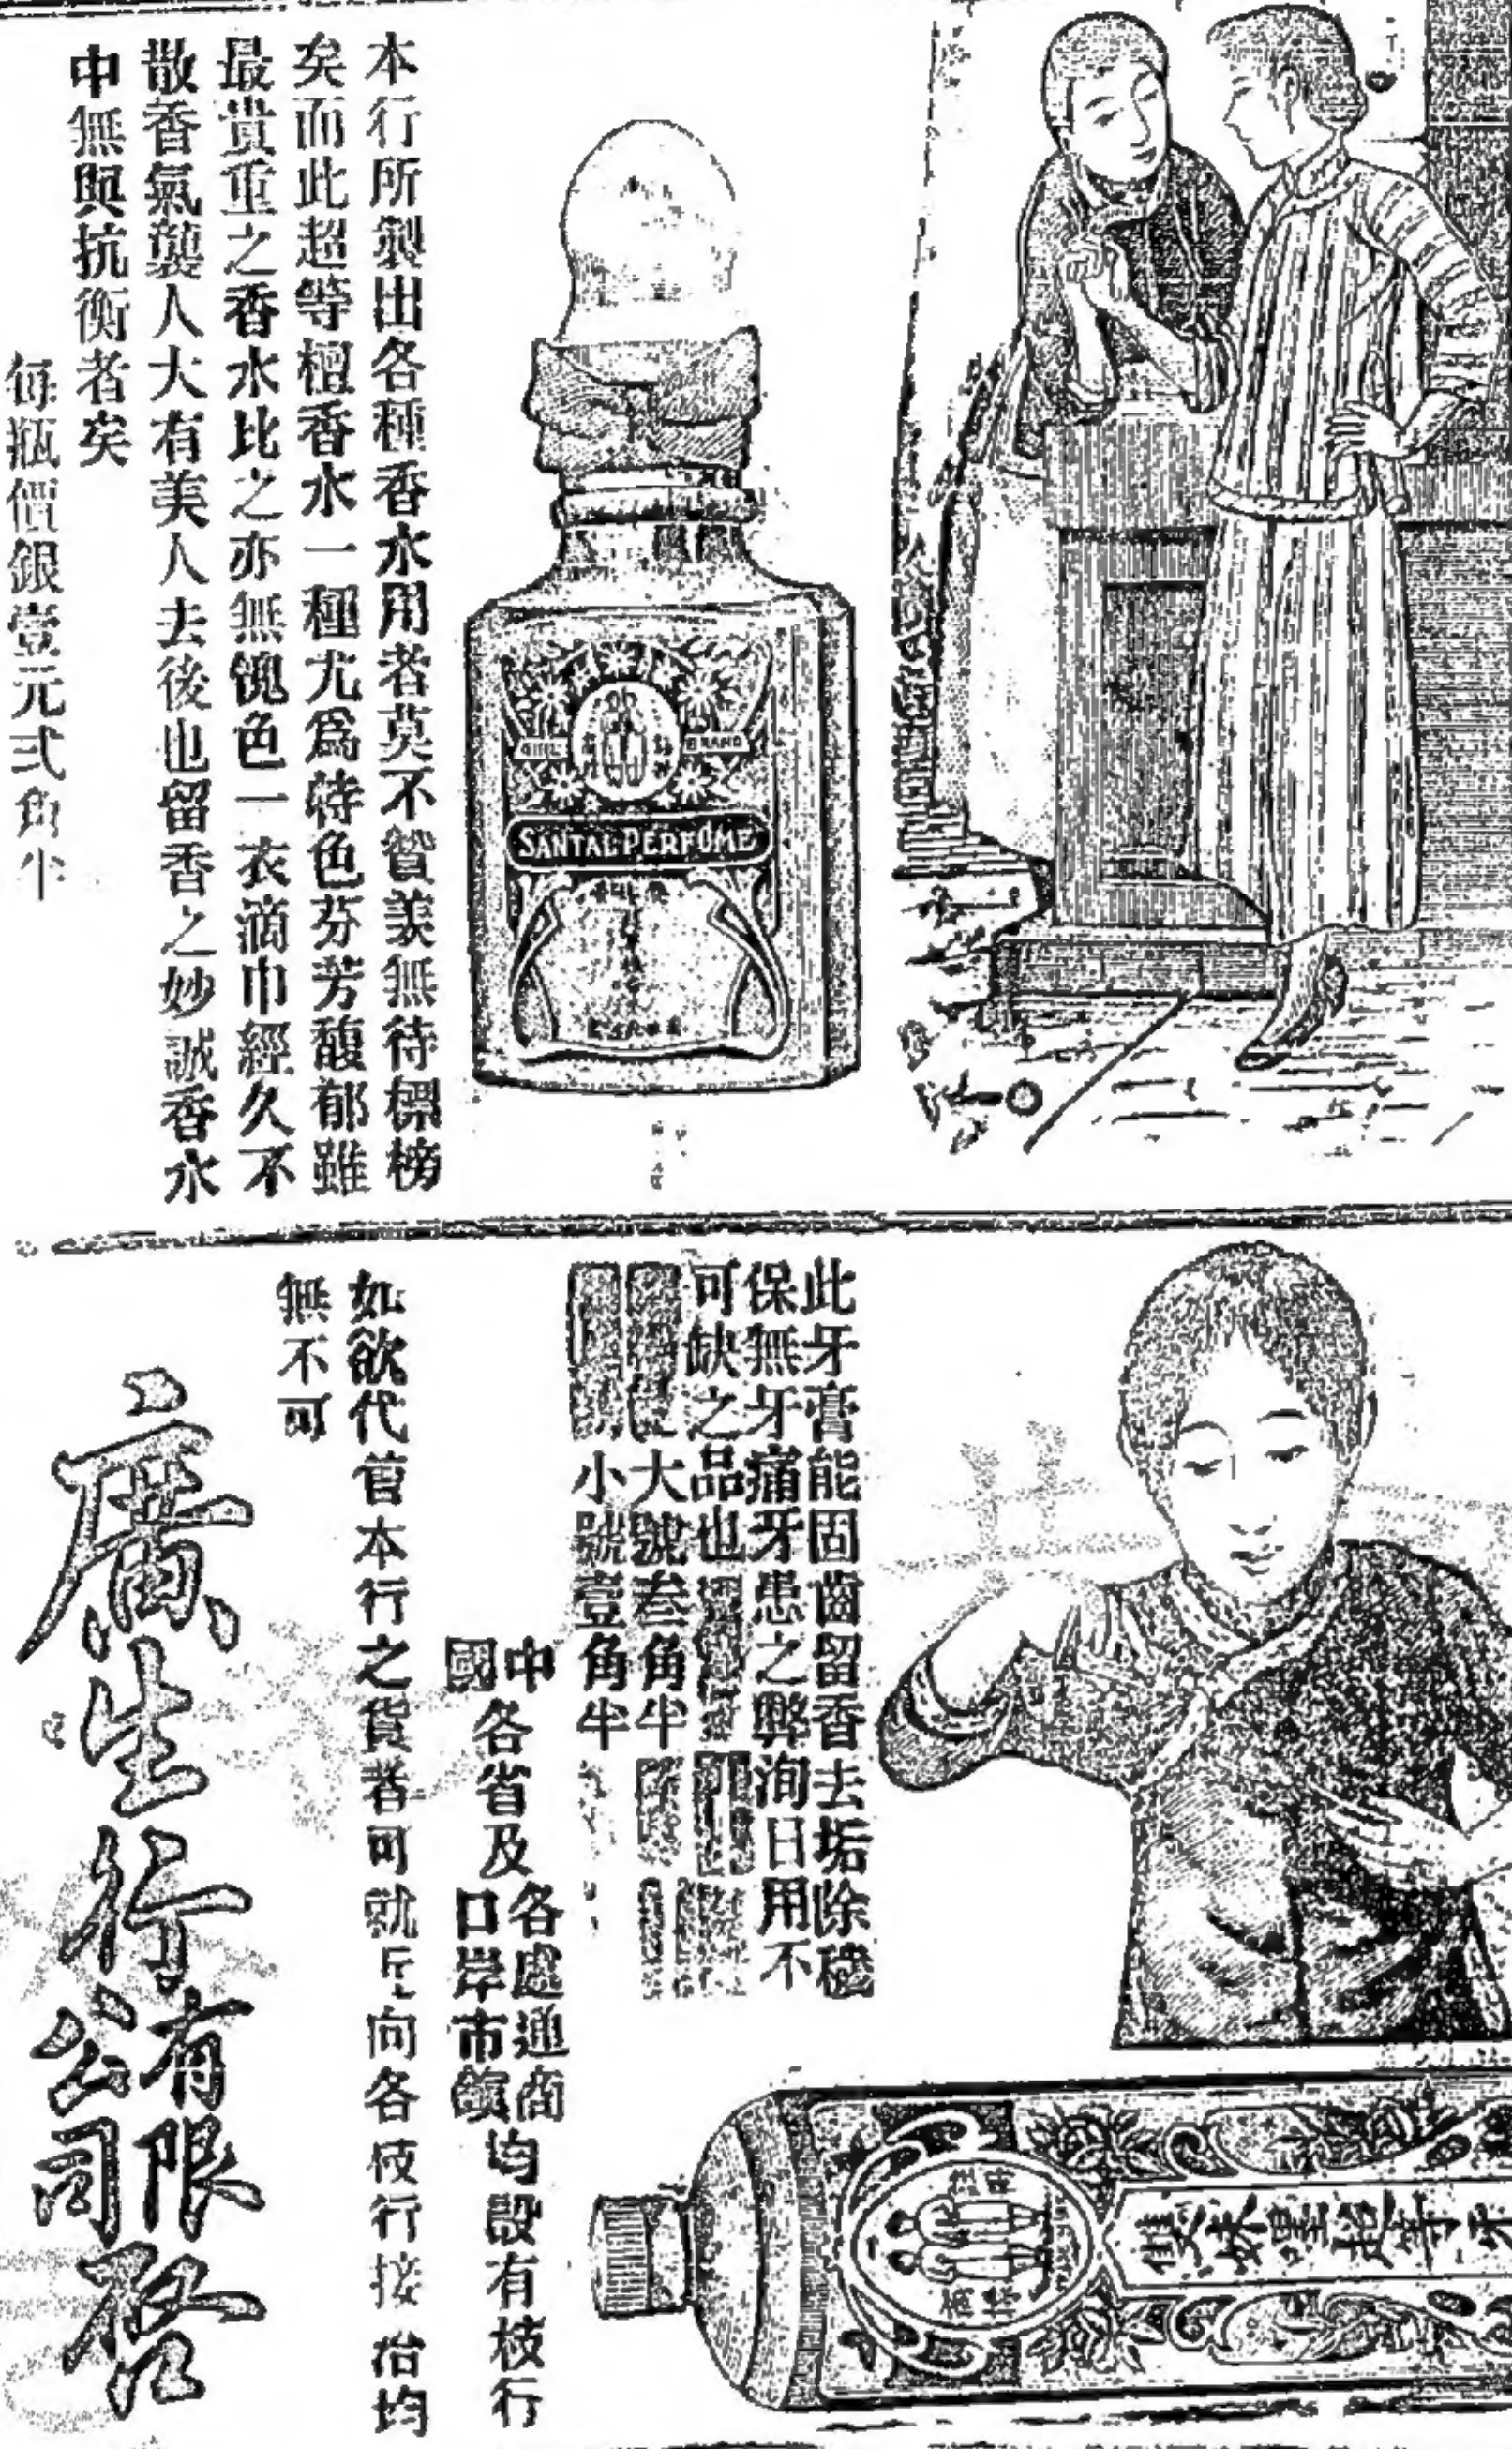 本行所製出各種香水用者莫不贊羨無待標榜
矣而此超等檀香水一種尤爲特色芬芳馥郁雖
最貴重之香水比之亦無愧色一衣滴巾經久不
散香氣襲人大有美人去後也留香之妙誠香水
中無與抗衡者矣
每瓶價銀壹元弍角半
GIRL BRAND
SANTAL PERFUME
此牙膏能固齒留香去垢除穢
保無牙痛牙患之弊洵日用不
可缺之品也
大號叁角半
小號壹角半
中國各省及各處通商口岸市鎮均設有枝行
如欲代售本行之貨者可就近向各枝行接洽均
無不可
廣生行有限公司啓
雙妹嘜超等牙
商標